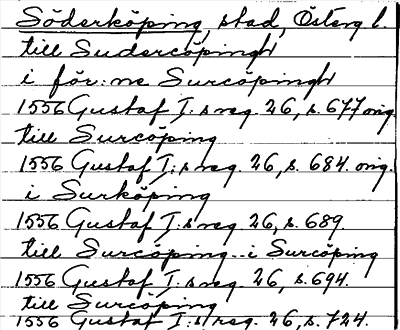 Söderköping, stad, Österg l.
till Sudercöpingh
i för:ne Surcöpingh
1556 Gustaf I:s reg. 26, s. 677 orig.
till Surcöping
1556 Gustaf I:s reg. 26, s. 684. orig.
i Surköping
1556 Gustaf I:s reg. 26, s. 689.
till Surcöping - i Surcöping
1556 Gustaf I:s reg. 26, s. 694.
till Surcöping
1556 Gustaf I:s reg. 26, s. 724.